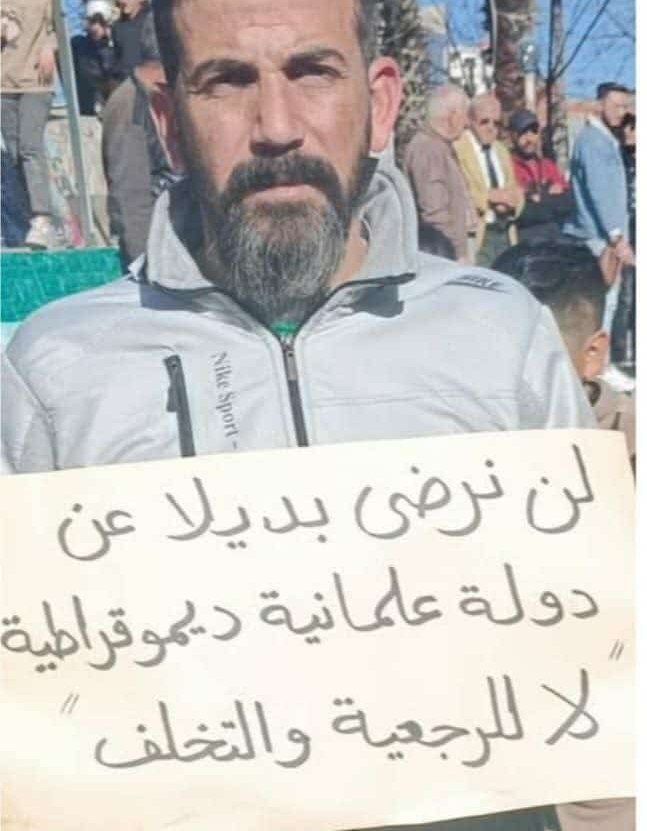 Nike Sport -
لن نرضى بديلا عن
دولة علمانية ديموقراطية
"لا للرجعية والتخلف"